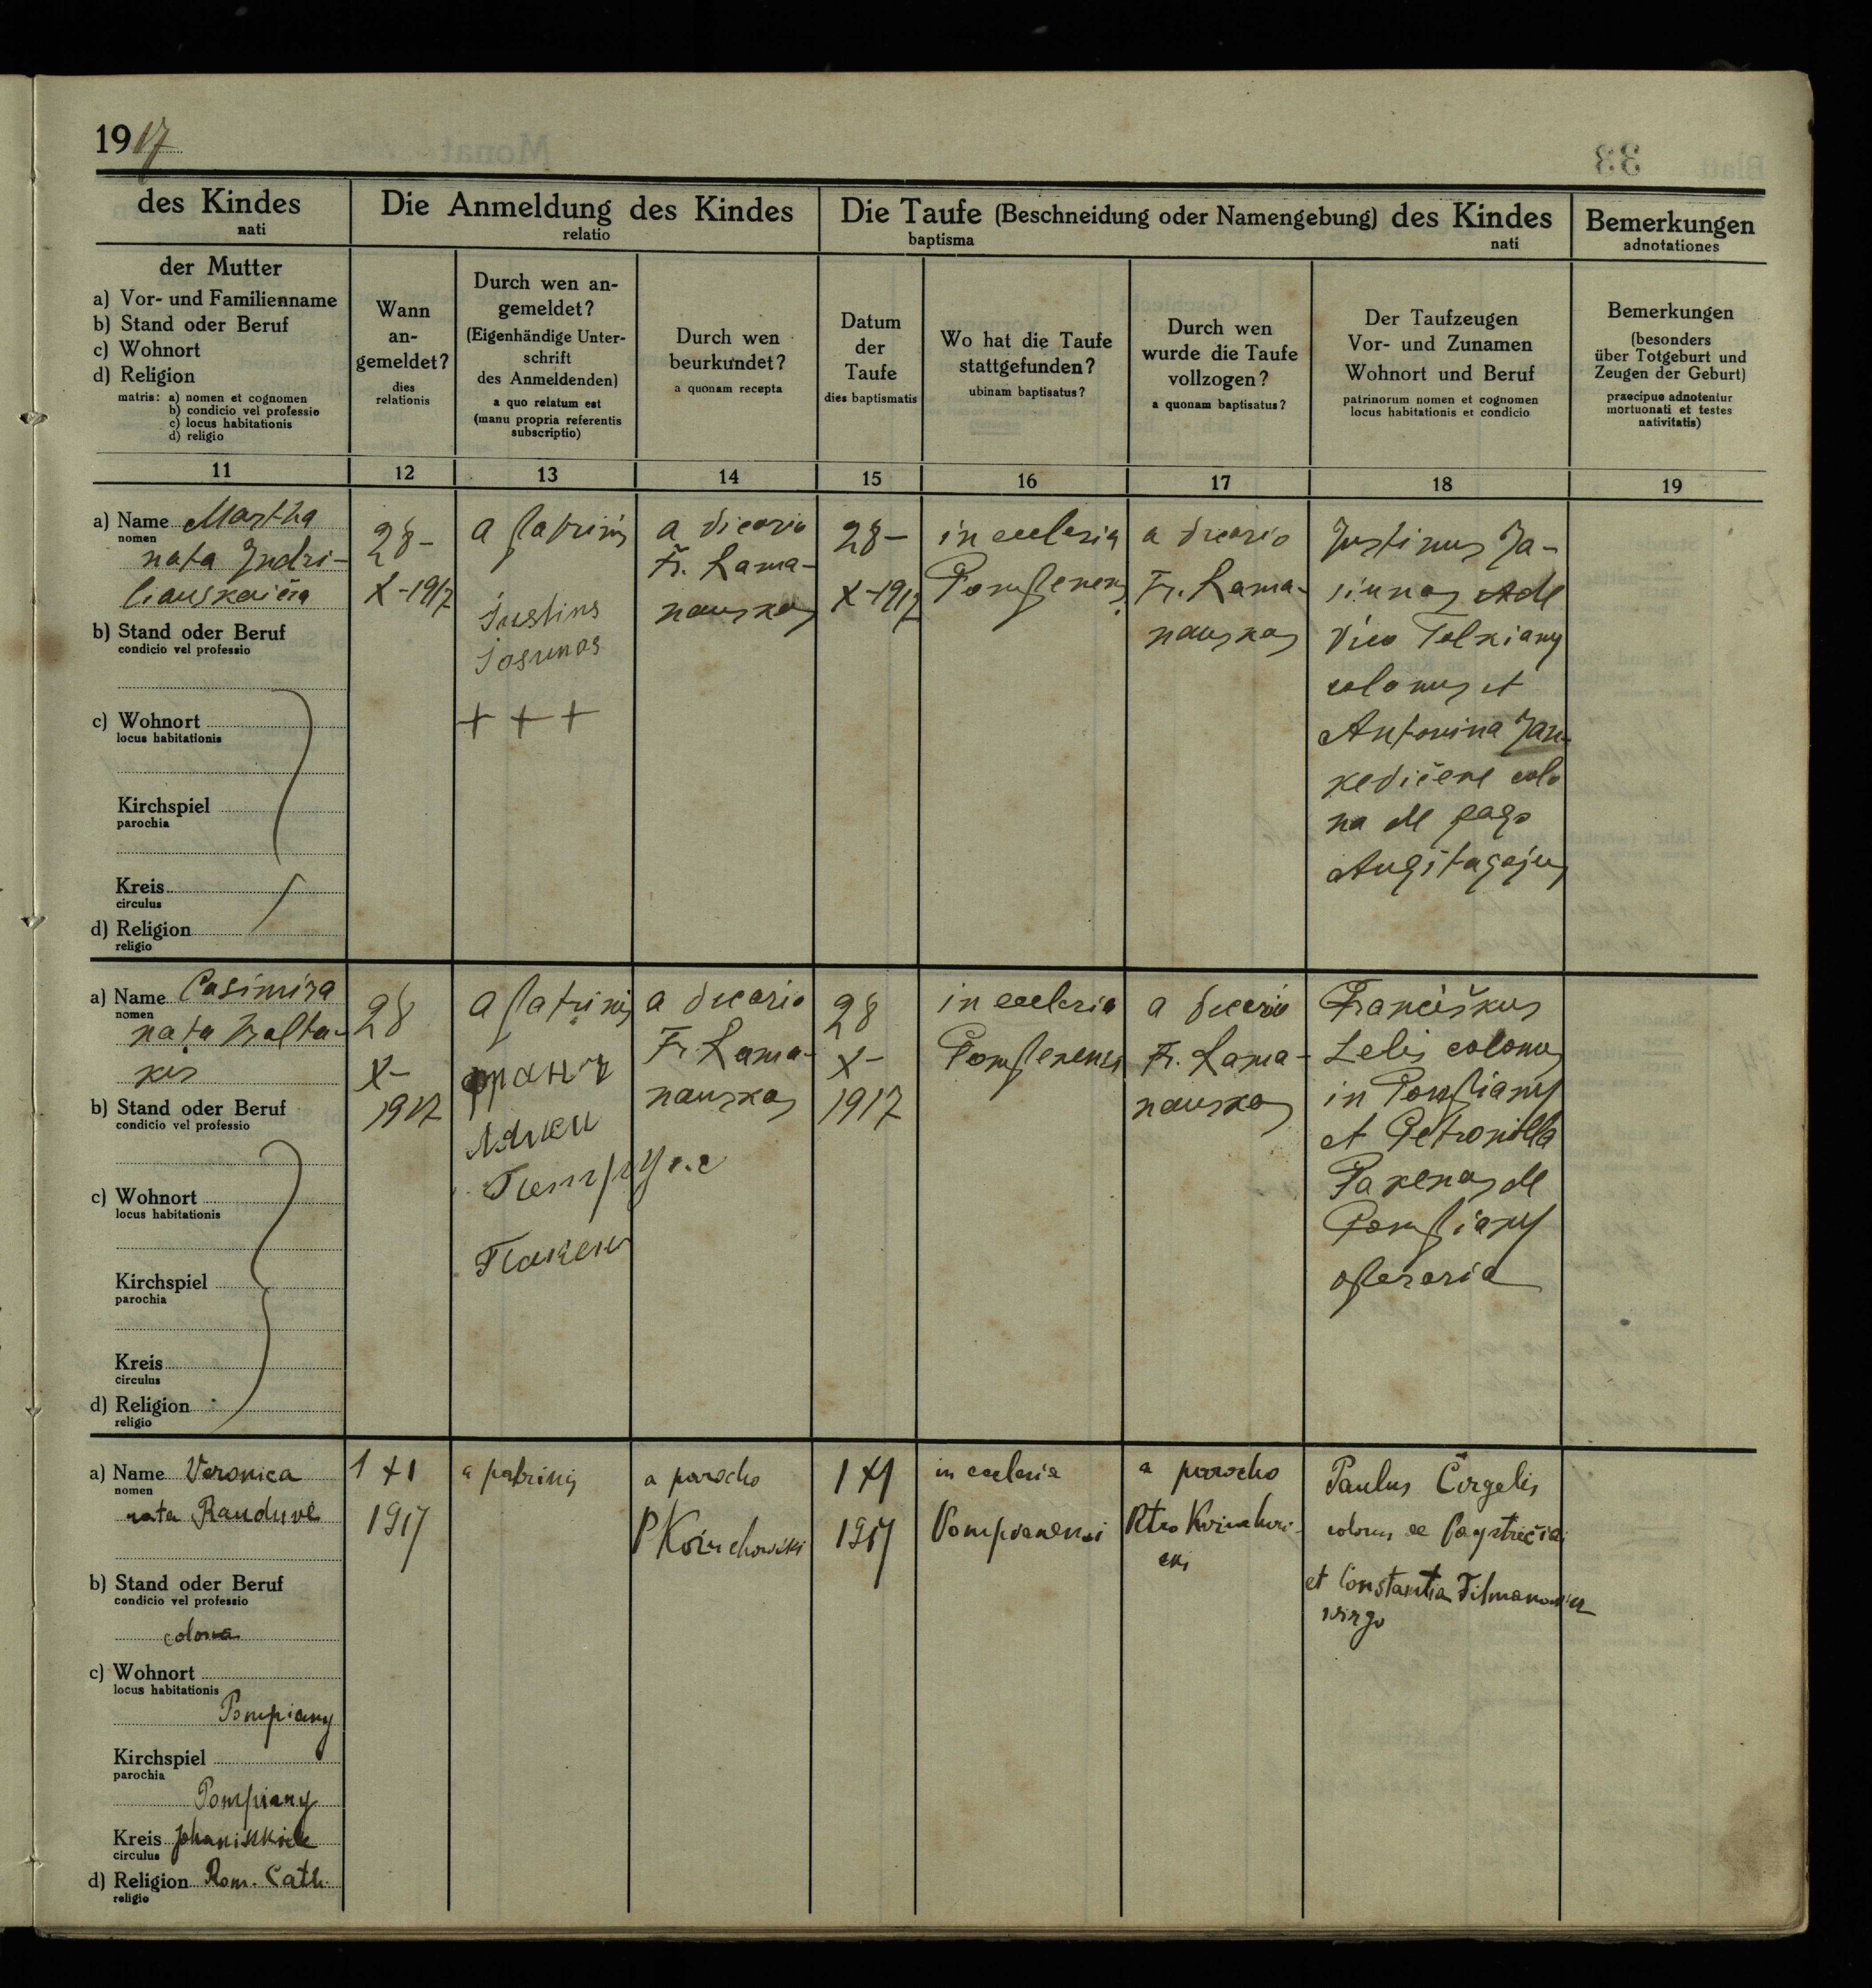 1917
des Kindes
nati
Die Anmeldung des Kindes
relatio
Die Taufe (Beschneidung oder Namengebung) des Kindes
baptisma nati
Bemerkungen
adnotationes
der Mutter
a) Vor- und Familienname
b) Stand oder Beruf
c) Wohnort
d) Religion
matris: a) nomen et cognomen
b) condicio vel professio
c) locus habitationis
d) religio
Wann
an-
gemeldet?
dies
relationis
Durch wen an-
gemeldet?
(Eigenhändige Unter-
schrift
des Anmeldenden)
a quo relatum est
(manu propria referentis
subscriptio)
Durch wen
beurkundet?
a quonam recepta
Datum
der
Taufe
dies baptismatis
Wo hat die Taufe
stattgefunden?
ubinam baptisatus?
Durch wen
wurde die Taufe
vollzogen?
a quonam baptisatus?
Der Taufzeugen
Vor- und Zunamen
Wohnort und Beruf
patrinorum nomen et cognomen
locus habitationis et condicio
Bemerkungen
(besonders
über Totgeburt und
Zeugen der Geburt)
praecipue adnotentur
mortuonati et testes
nativitatis)
11 12 13 14 15 16 17 18 19
a) Name Martha
nomen
nata Indri-
b) Stand oder Beruf
condicio vel professio
c) Wohnort
locus habitationis
Kirchspiel
parochia
Kreis
circulus
d) Religion
religio
28-
X-1917
a patrinis
Justins
Josunas
+ + +
a vicario
Fr. Rama-
nauskas
28-
X-1917
in ecclesia
Pompenens.
a vicario
Fr. Rama-
nauskas
Justinus Ja-
siunas de
vico
colonus et
Antonina Jan-
kevičene colo
na de pago
a) Name Casimira
nomen
nata Balta-
kis
b) Stand oder Beruf
condicio vel professio
c) Wohnort
locus habitationis
Kirchspiel
parochia
Kreis
circulus
d) Religion
religio
28
X-
1917
a patrinis
Пакен
a vicario
Fr. Rama-
nauskas
28
X-
1917
in ecclesia
Pompenensi
a vicario
Fr. Rama-
nauskas
Franciškus
Lelis colonus
in Pompiany
et Petronella
Pakenas de
Pompiany
operaria
a) Name Veronica
nomen
nata Rauduvė
b) Stand oder Beruf
condicio vel professio
colona
c) Wohnort
locus habitationis
Pompiany
Kirchspiel
parochia
Pompiany
Kreis Johanischkiele
circulus
d) Religion Rom. Cath.
religio
1 XI
1917
a patrinis
a parocho
1 XI
1917
in ecclesia
Pompianensi
a parocho
Paulus Čirgelis
colonus
et Constantia
virgo